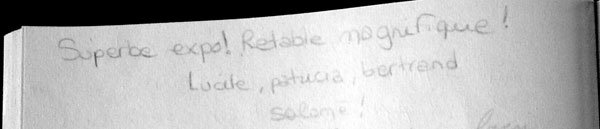 Superbe expo! Retable magnifique!
Lucile, patricia, bertrand
salomé!